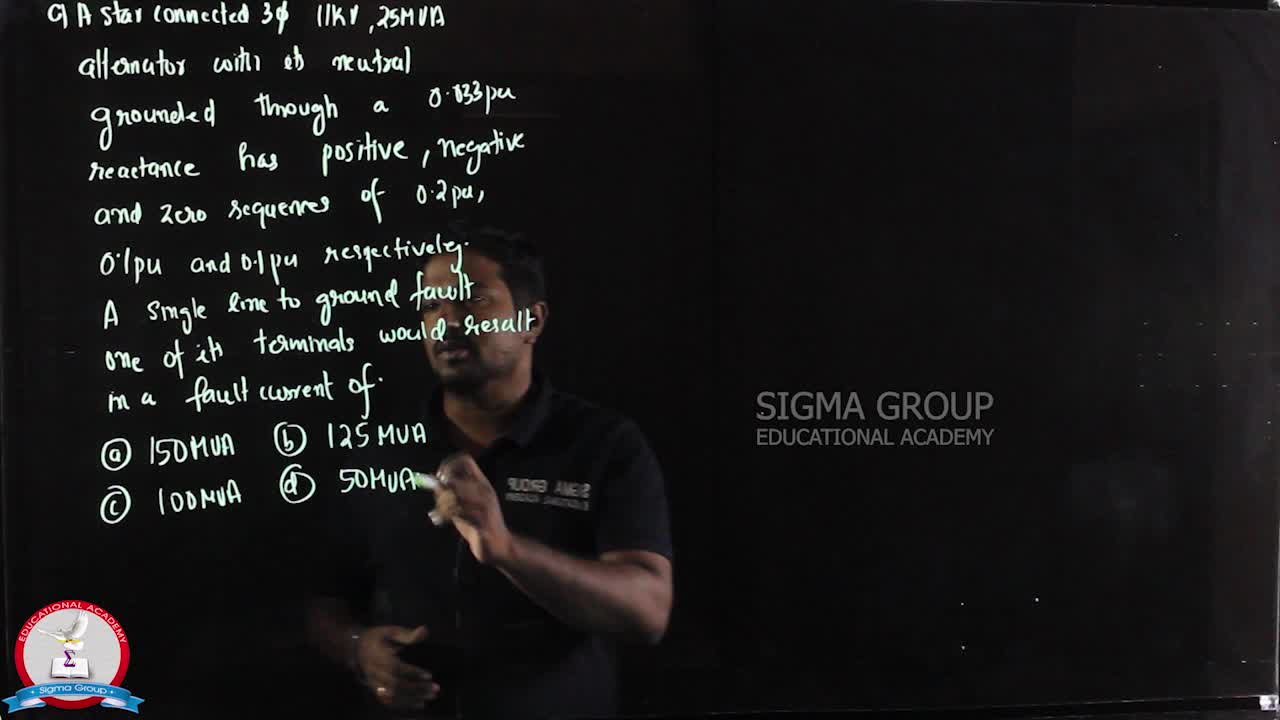 Q) A Star connected 3ϕ 11KV, 25MVA
alternator with its neutral
grounded through a 0.033pu
reactance has positive, negative
and zero sequences of 0.2pu,
0.1pu and 0.1pu respectively.
A single line to ground fault
one of its terminals would result
in a fault current of.
(a) 150MVA (b) 125MVA
(c) 100MVA (d) 50MVA
SIGMA GROUP
EDUCATIONAL ACADEMY
EDUCATIONAL ACADEMY
Σ
Sigma Group